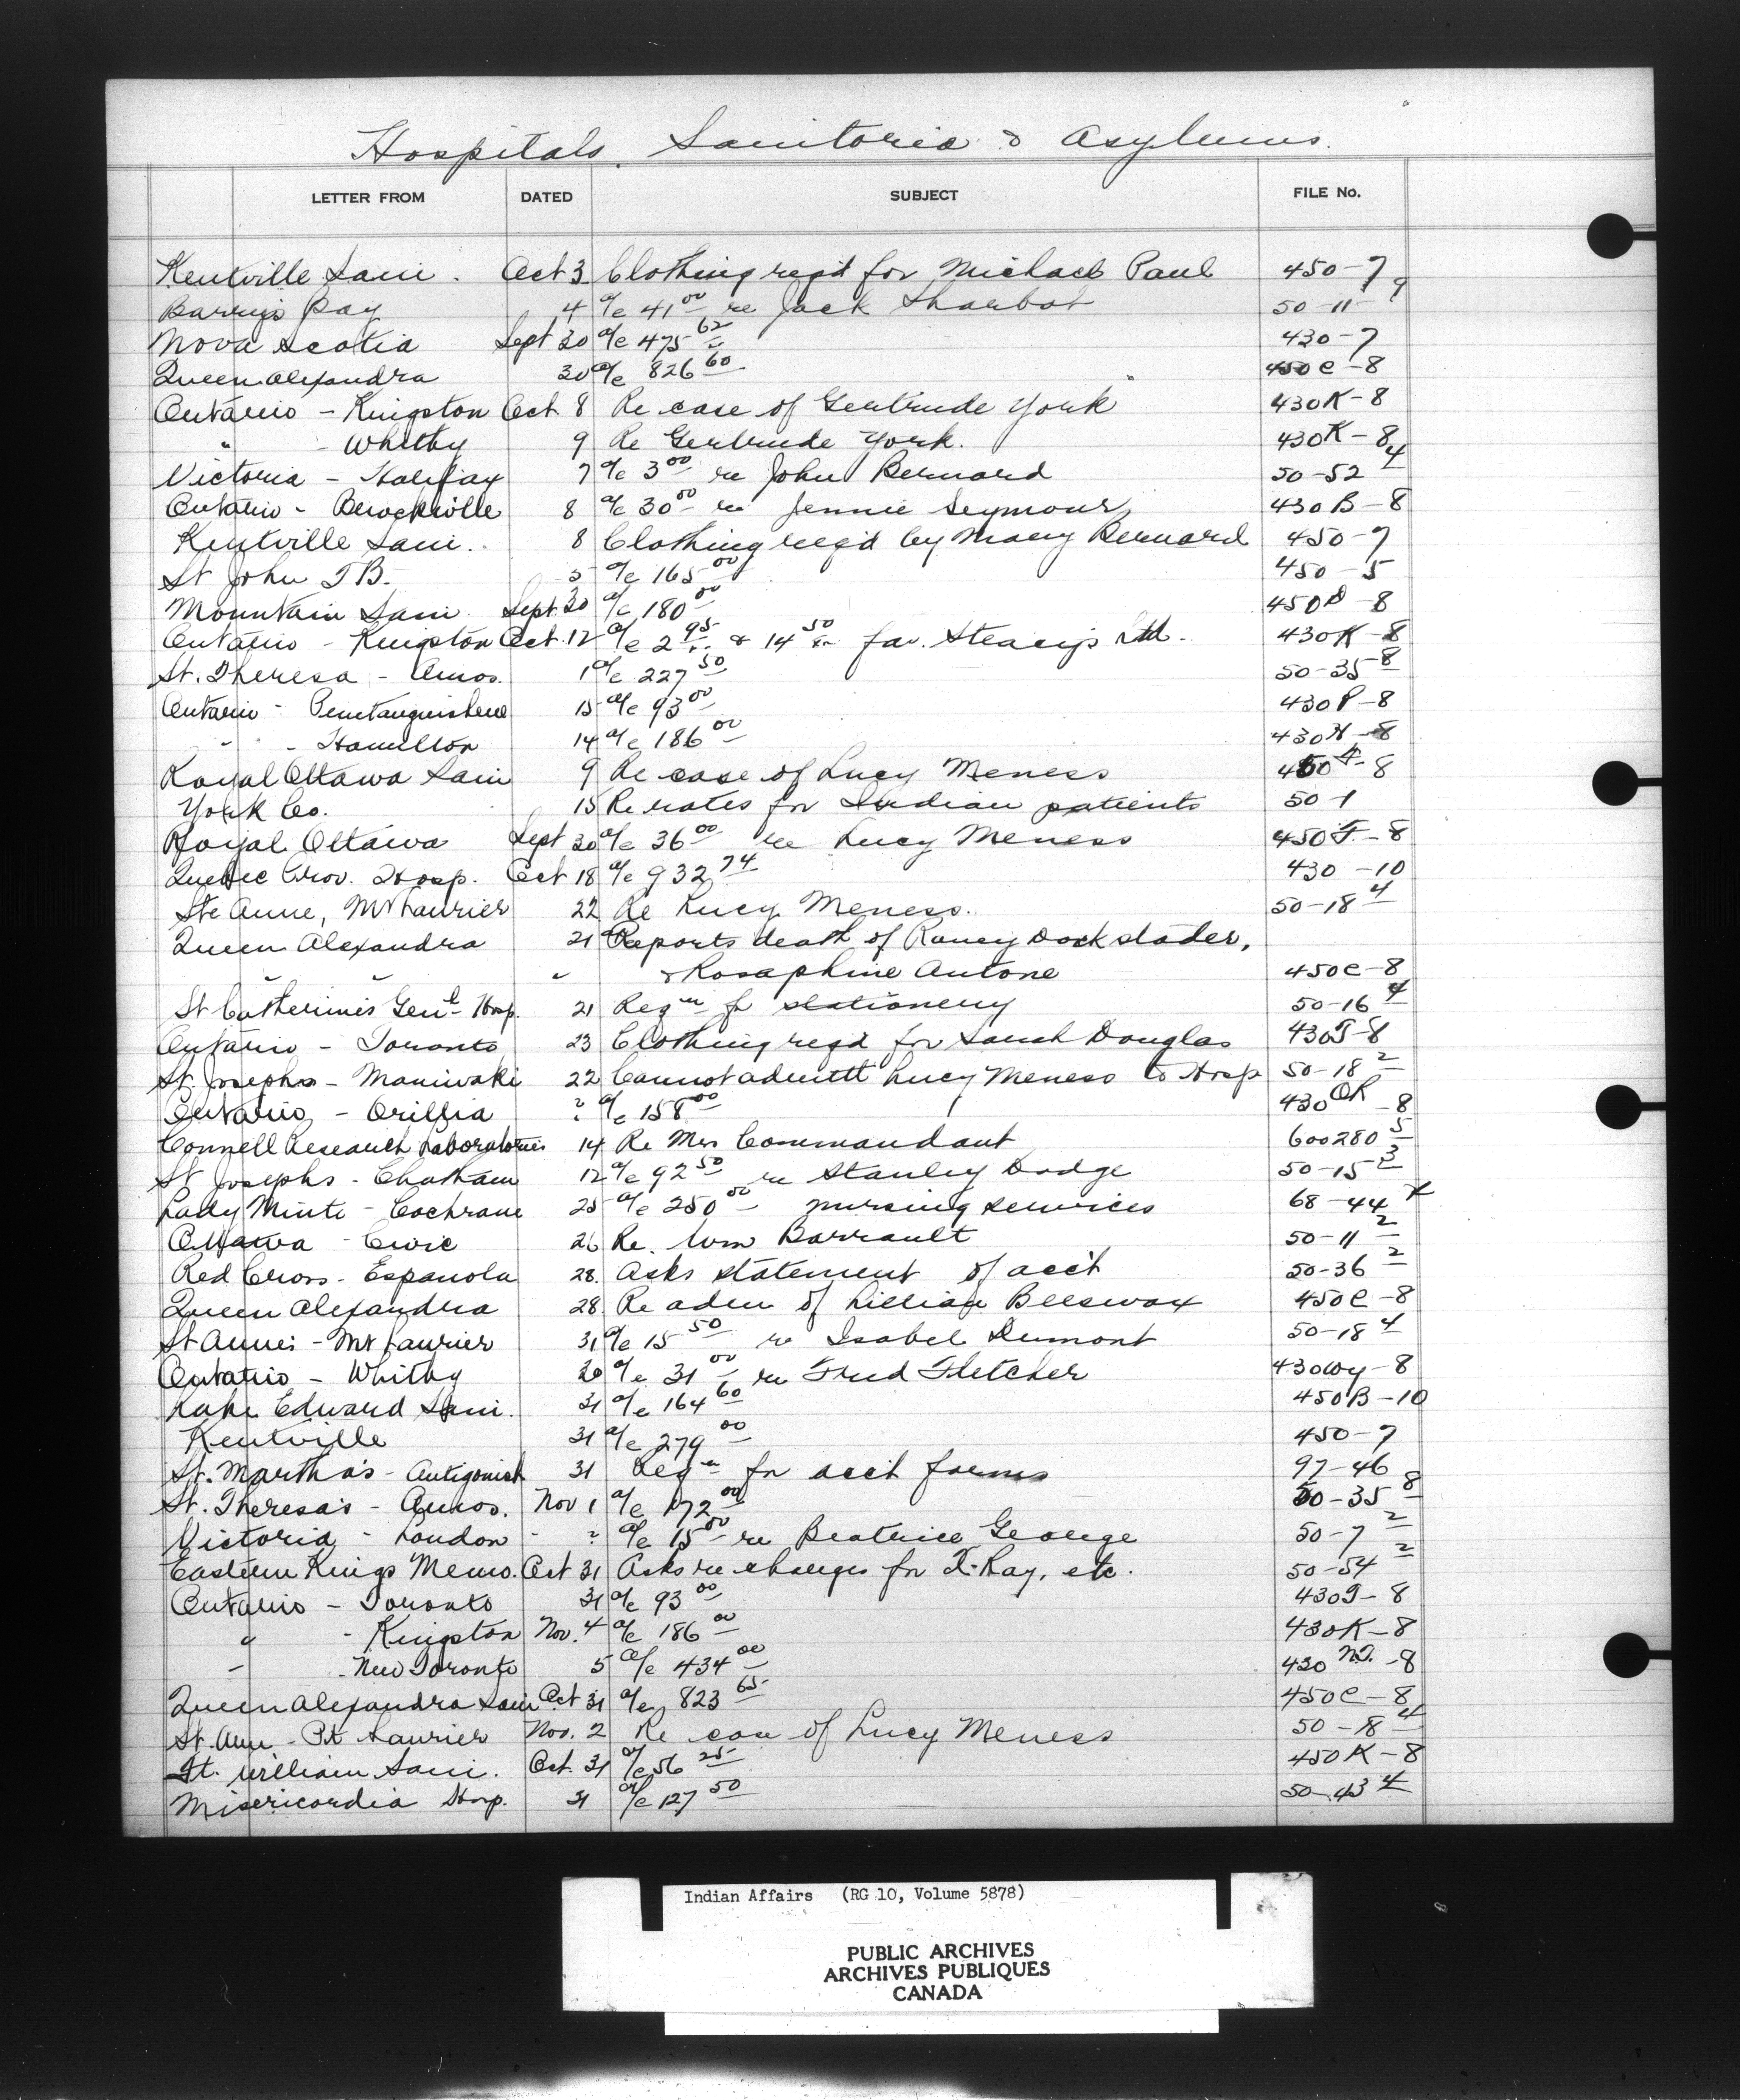 Hospitals, Sanitoria & Asylums.
LETTER FROM DATED SUBJECT FILE No.
Kentville Sani. Oct 3 Clothing reqd for Michael Paul 450-7
Barry's Bay 4 a/c 41 00 re Jack Sharbot 50-11-9
Nova Scotia Sept 30 a/c 475 62 430-7
Queen Alexandra 30 a/c 826 60 450C-8
Ontario - Kingston Oct 8 Re case of Gertrude York 430K-8
" - Whitby 9 Re Gertrude York. 430K-8
Victoria - Halifax 7 a/c 3 00 re John Bernard 50-52 4
Ontario - Brockville 8 a/c 30 00 re Jennie Seymour 430B-8
Kentville Sani. 8 Clothing reqd by Mary Bernard 450-7
St John T B. 5 a/c 165 00 450-5
Mountain Sani Sept 30 a/c 180 00 450D-8
Ontario - Kingston Oct. 12 a/c 2 95 & 14 50 fav. Steacy's Ltd. 430K-8
St. Theresa - Amos. 1 a/c 227 50 50-35-8
Ontario - Penetanguishene 15 a/c 93 00 430P-8
" - Hamilton 14 a/c 186 00 430H-8
Royal Ottawa Sani 9 Re case of Lucy Meness 450F-8
York Co. 15 Re rates for Indian patients 50-1
Royal Ottawa Sept 30 a/c 36 00 re Lucy Meness 450F-8
Quebec Prov. Hosp. Oct 18 a/c 932 74 430-10
Ste Anne, Mt Laurier 22 Re Lucy Meness. 50-18 4
Queen Alexandra 21 Reports death of Raney Dockstader,
" " " & Rosaphine Antone 450C-8
St Catherines Genl Hosp. 21 Reqn for stationery 50-16 4
Ontario - Toronto 23 Clothing reqd for Sarah Douglas 430T-8
St. Josephs - Maniwaki 22 Cannot admitt Lucy Meness to Hosp 50-18 2
Ontario - Orillia ? a/c 158 00 430 OR-8
Connell Research Laboratories 14 Re Mrs Commandant 600280 5
St Josephs - Chatham 12 a/c 92 50 re Stanley Dodge 50-15 3
Lady Minto - Cochrane 25 a/c 250 00 nursing services 68-44 X
Ottawa - Civic 26 Re. Wm Barrault 50-11 2
Red Cross - Espanola 28. Asks statement of acct 50-36 2
Queen Alexandra 28. Re adm of Lillian Beeswax 450C-8
St Annes - Mt Laurier 31 a/c 15 50 re Isabel Dumont 50-18 4
Ontario - Whitby 20 a/c 31 00 re Fred Fletcher 430Wy-8
Lake Edward Sani. 31 a/c 164 60 450B-10
Kentville 31 a/c 279 00 450-7
St. Martha's - Antigonish 31 Reqn for acct forms 97-46
St. Theresa's - Amos. Nov 1 a/c 172 00 50-35 8
Victoria - London - ? a/c 15 00 re Beatrice George 50-7 2
Eastern Kings Memo. Oct 31 Asks re charges for X-Ray, etc. 50-54 2
Ontario - Toronto 31 a/c 93 00 430T-8
" - Kingston Nov. 4 a/c 186 00 430K-8
" - New Toronto 5 a/c 434 00 430 N.T.-8
Queen Alexandra Sani Oct 31 a/c 823 65 450C-8
St. Ann - Pt Laurier Nov. 2 Re case of Lucy Meness 50-18 4
Ft. William Sani. Oct. 31 a/c 56 25 450K-8
Misericordia Hosp. 31 a/c 127 50 50-43 4
Indian Affairs (RG 10, Volume 5878)
PUBLIC ARCHIVES
ARCHIVES PUBLIQUES
CANADA